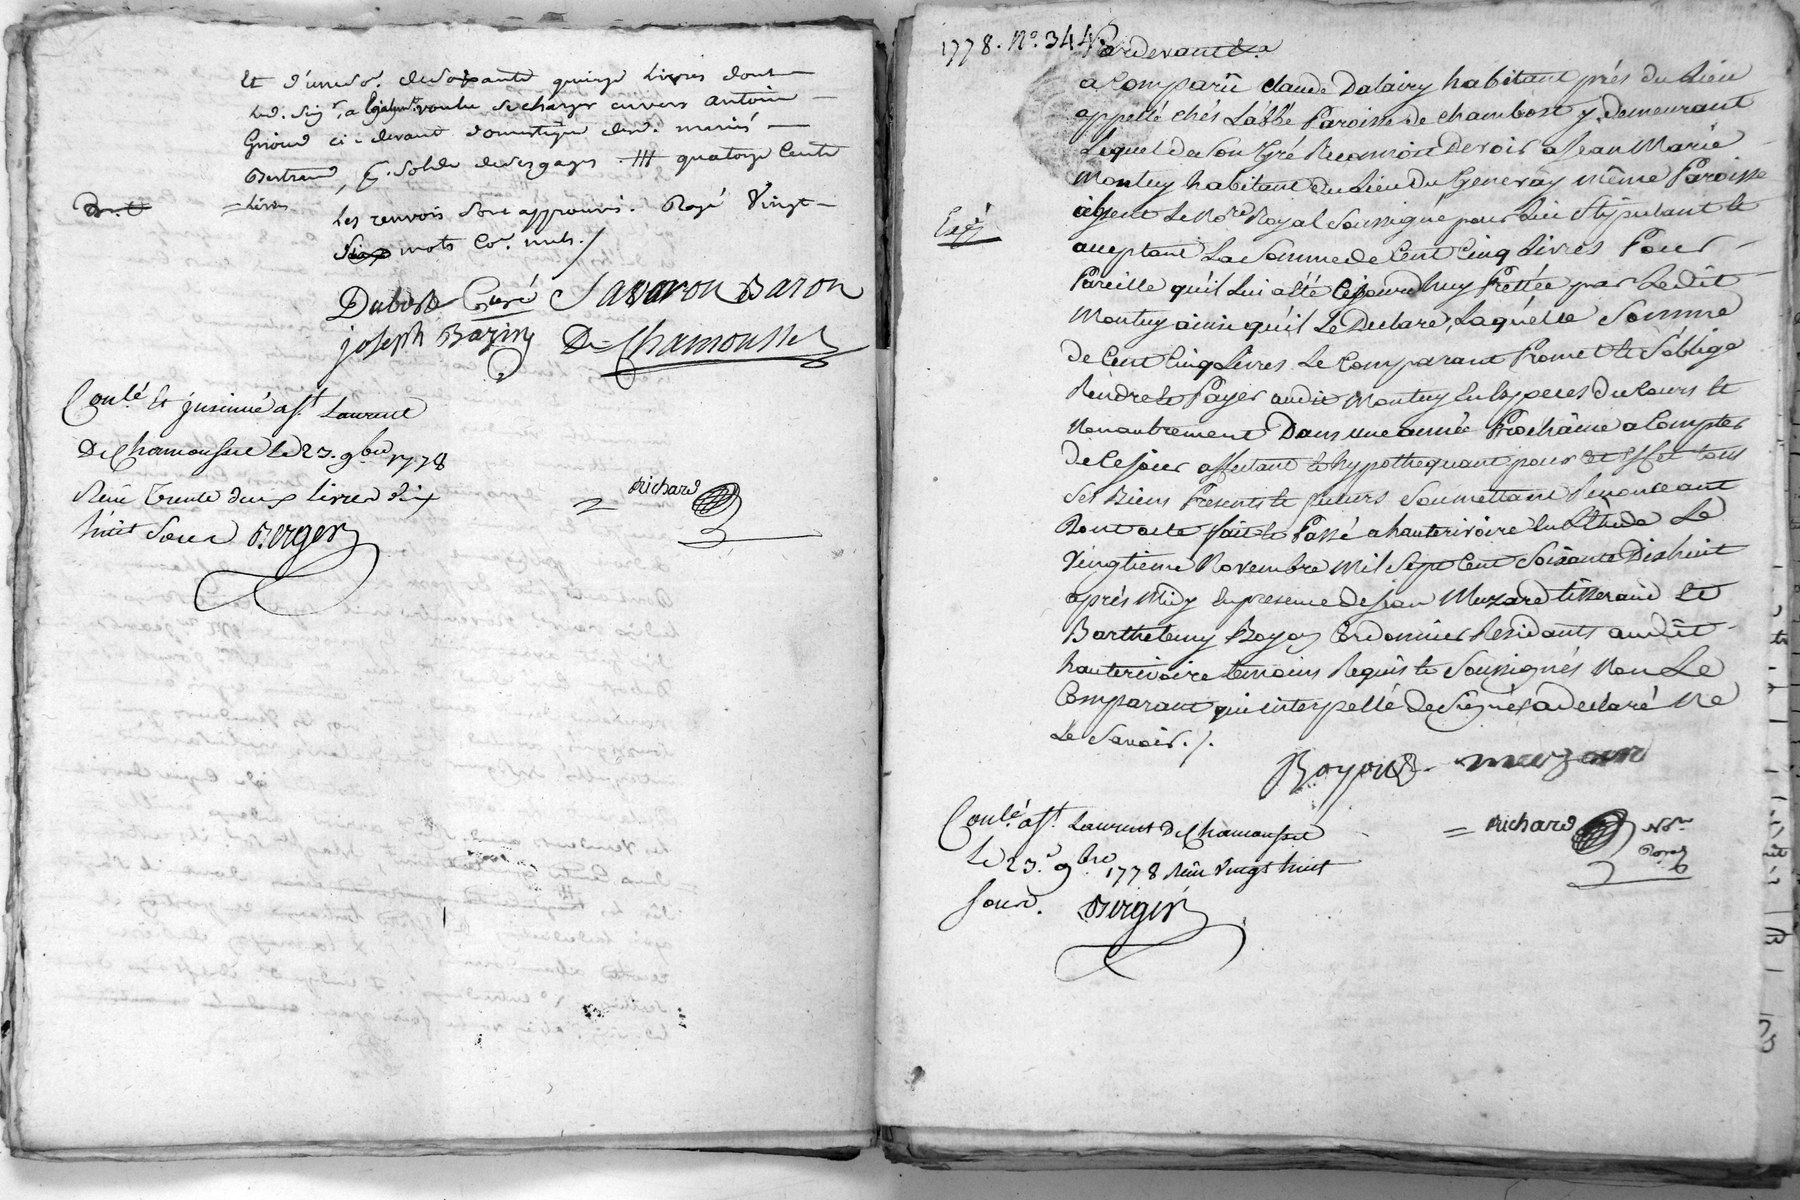 Et d'une so.e de soixante quinze Livres dont
led. Sig.r a Egalem.t voulu se charger envers antoine
Giroud ci-devant domestique dud. mariés
Bertrand, p.r solde de ses gages. quatorze Cents
=Livres
les renvois sont approuvés. Rayé Vingt-
Six mots Co.e nuls./
Dubost Curé Savaron Baron
joseph Bazin De Chamousset
Conlé Et jnsinué a St Laurent
De Chamousset le 23. 9bre 1778
Reçu Trente deux livres dix
huit Sous Berger
= Richard
1778. N.o 344.
Pardevant
a Comparû Claude Dalairy habitant près du Lieu
appellé chés Labbé Paroisse de Chambost y demeurant
Lequel de son Gré Reconnoit Devoir a Jean Marie
Montuy habitant du Lieu du Generay même Paroisse
absent Le No.re Royal Soussigné pour lui Stipulant Et
acceptant La Somme de Cent Cinq Livres Pour
Pareille qu'il Lui a été Cejourd'huy Prêttée par Ledit
Montuy ainsi qu'il Le Declare, Laquelle Somme
De Cent Cinq Livres Le Comparant Promet Et S'oblige
Rendre Et Payer audit Montuy En Especes Du Cours Et
Non autrement Dans une année Prochaine a Compter
De Ce jour affectant Et hypothequant pour cet Effet tous
Ses Biens Presents Et futurs Soumettant Renonceant
Dont acte fait Et Passé a hauterivoire En L'Etude Le
Vingtieme Novembre Mil Sept Cent Soixante Dixhuit
après Midy En presence de jean Muzard tisserand Et
Barthelemy Boyou Cordonnier Residants audit
hauterivoire temoins Requis Et Soussignés Non Le
Comparant qui interpellé De Signer a Declaré Ne
Le Savoir./.
Exp.é
Boyou muzard
Conlé a St. Laurent De Chamousset
Le 23.e 9bre 1778 Reçu Vingt huit
Sous. Berger
= Richard No.re
Royal